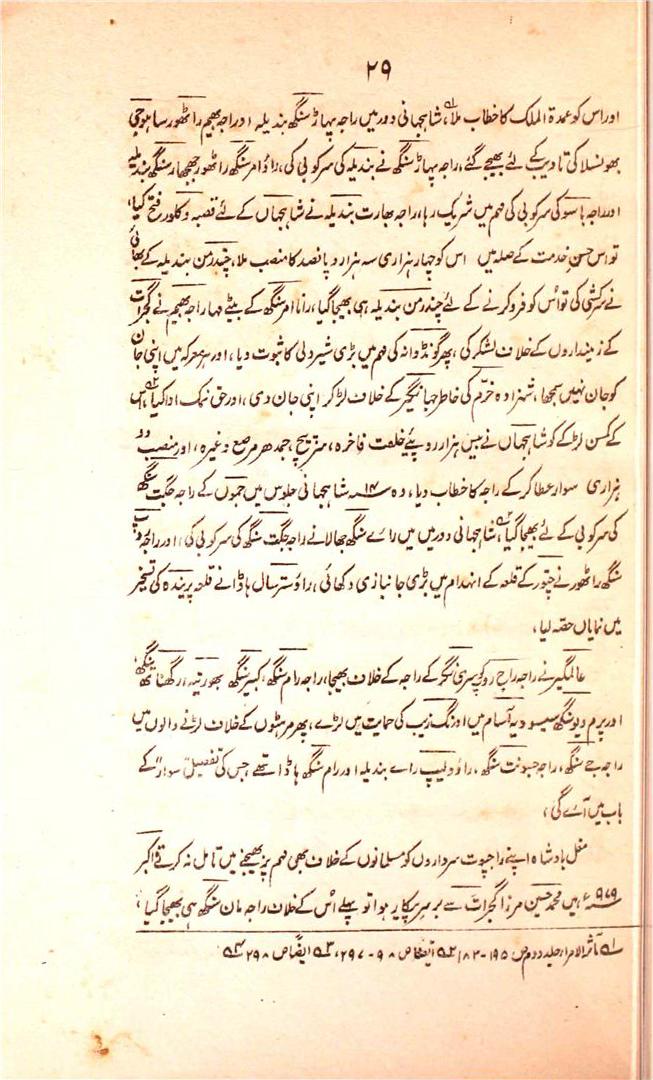 ۲۹
اور اس کو عمدۃ الملک کا خطاب ملا، شاہجہانی دور میں راجہ پہاڑ سنگھ بندیلہ اور راجہ بھیم راٹھور ساہوجی
بھونسلا کی تادیب کے لئے بھیجے گئے، راجہ پہاڑ سنگھ نے بندیلہ کی سرکوبی کی، راؤ امر سنگھ راٹھور جھجھار سنگھ بندیلہ
اور راجہ باسو کی سرکوبی کی مہم میں شریک رہا، راجہ بھارت بندیلہ نے شاہجہاں کے لئے قصبہ و کلور فتح کیا،
تو اس حسنِ خدمت کے صلہ میں اس کو چہار ہزاری سہ ہزار و پانصد کا منصب ملا، چندرمن بندیلہ کے بھائی
نے سرکشی کی تو اُس کو فرو کرنے کے لئے چندرمن بندیلہ ہی بھیجا گیا، رانا امر سنگھ کے بیٹے مہاراجہ بھیم نے گجرات
کے زمینداروں کے خلاف لشکر کی، پھر گونڈوانہ کی مہم میں بڑی شیردلی کا ثبوت دیا، اور ہر معرکہ میں اپنی جان
کو جان نہیں سمجھا، شہزادہ خرّم کی خاطر جہانگیر کے خلاف لڑ کر اپنی جان دی، اور حق نمک ادا کیا، اس
کے کمسن لڑکے کو شاہجہاں نے بیس ہزار روپئے خلعت فاخرہ، سرپیچ، جمدھر مرصع وغیرہ، اور منصب دو
ہزاری سوار عطا کر کے راجہ کا خطاب دیا، وہ ۱۴ سنہ شاہجہانی جلوس میں جموں کے راجہ جگت سنگھ
کی سرکوبی کے لئے بھیجا گیا، شاہجہانی دور میں میں رائے سنگھ جھالا نے راجہ جگت سنگھ کی سرکوبی کی، اور راجہ روپ
سنگھ راٹھور نے چتور کے قلعہ کے انہدام میں بڑی جانبازی دکھائی، راؤ سترسال ہاڈا نے قلعہ پرینده کی تسخیر
میں نمایاں حصہ لیا،
عالمگیر نے راجہ راج روپ کو سری نگر کے راجہ کے خلاف بھیجا، راجہ رام سنگھ، کبیر سنگھ بھورتیہ، رگھناتھ سنگھ
اور پرم دیو سنگھ سیسودیہ آسام میں اورنگ زیب کی حمایت میں لڑے، پھر مرہٹوں کے خلاف لڑنے والوں میں
راجہ جے سنگھ، راجہ جسونت سنگھ، راؤ دلیپ رائے بندیلہ اور رام سنگھ ہاڈا تھے جس کی تفصیل "سوار" کے
باب میں آئے گی،
مغل بادشاہ اپنے راجپوت سرداروں کو مسلمانوں کے خلاف بھی مہم پر بھیجنے میں تامل نہ کرتے، اکبر
۹۷۹ھ میں محمد حسین مرزا گجرات سے برسر پیکار ہوا تو پہلے اُس کے خلاف راجہ مان سنگھ ہی بھیجا گیا،
۱ مآثر الامراء جلد دوم ص ۱۹۵ - ۱۸۳ ۲ ایضاً ص ۹۸ - ۲۹۷، ۳ ایضاً ص ۲۹۸ ۴